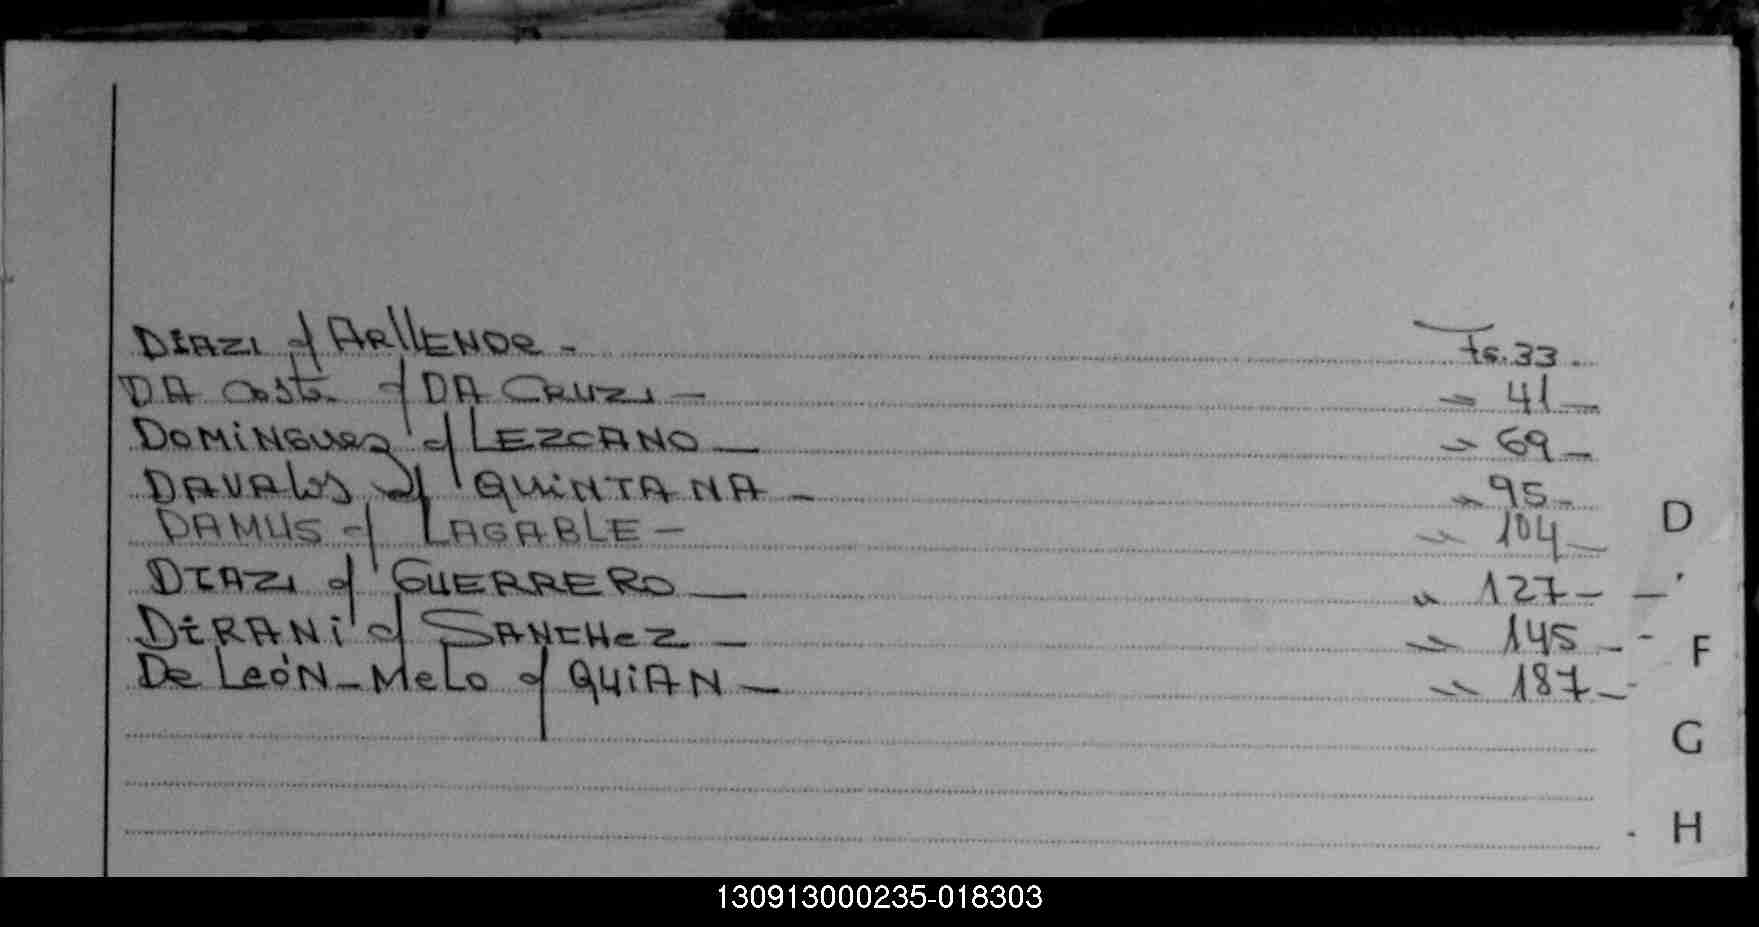 DIAZ y ARLLENDE - fs. 33.
DA Costa y DA CRUZ - " 41 -
DOMINGUEZ y LEZCANO - " 69 -
DAVALOS y QUINTANA - " 95 -
DAMUS y LAGABLE - " 104 -
DIAZ y GUERRERO - " 127 -
DIRANI y SANCHEZ - " 145 -
De LEÓN-MELO y QUIAN - " 187 -
D
F
G
H
130913000235-018303